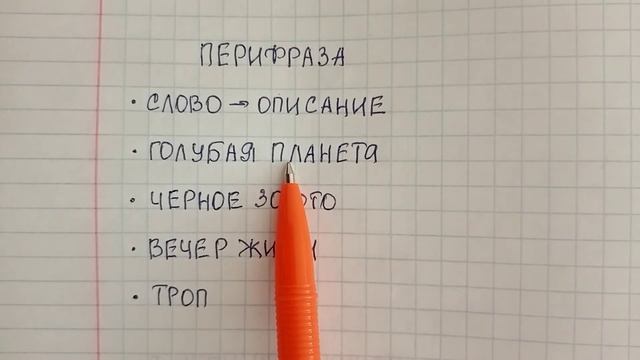 ПЕРИФРАЗА
• СЛОВО → ОПИСАНИЕ
• ГОЛУБАЯ ПЛАНЕТА
• ЧЕРНОЕ ЗОЛОТО
• ВЕЧЕР
• ТРОП